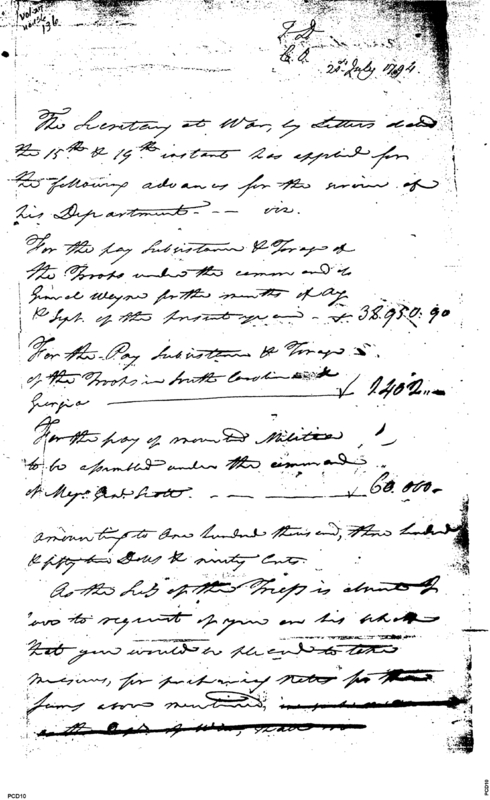 T D
C. O.
21st July 1794
The Secretary at War, by Letters dated
the 15th & 19th instant has applied for
the following advances for the service of
his Department - - - viz.
For the pay Subsistance & Forage of
the Troops under the command of
General Wayne for the months of Aug
& Sept. of the present year - 38.950.90
For the Pay Subsistence & Forage
of the Troops in South Carolina &
Georgia 1.402..
For the pay of mounted Militia
to be assembled under the command
of Majr Genl Scott. 60.000
amounting to One hundred thousand, three hundred
& fifty two Dolls & ninety Cents.
As the Secy of the Treasy is absent I
to request of you on his behalf
that you would be pleased to take
measures, for purchasing notes for the
sums above mentioned,
PCD10
PCD10